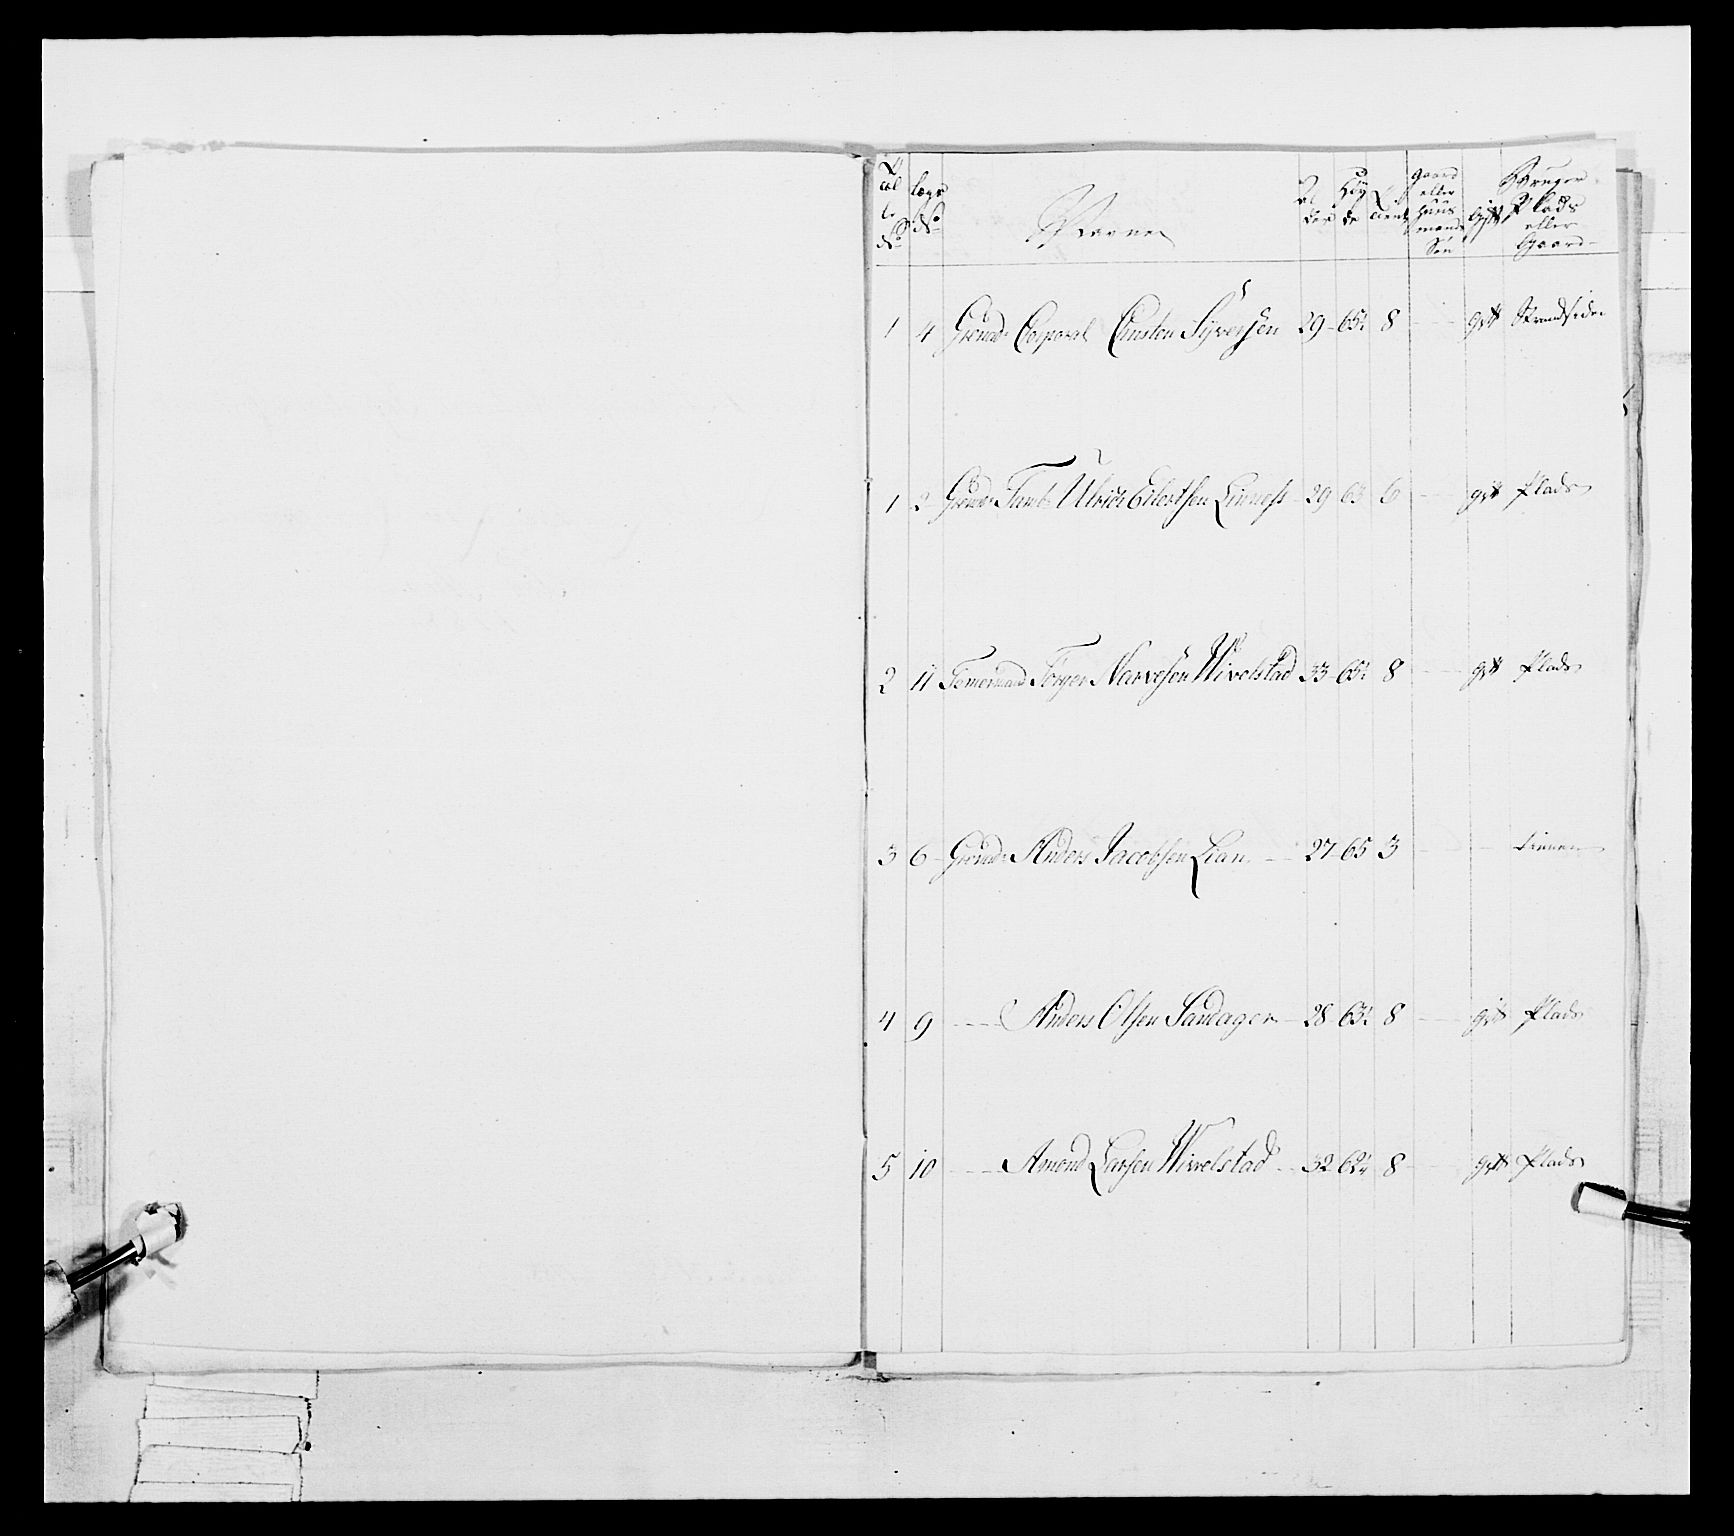 Tal No Lægs No Navne Alder Høyde Tient Gaard eller Huusmands Søn Gift Bruger Plads eller Gaard
1 4 Grenad: Corporal Syversen 29 65½ 8 gift Strandsiden
1 2 Grenad: Tamb: Ulrich Eilertsen Linnes 29 63 6 gift Plads
2 11 Tømermand Torger Narvesen Wivelstad 33 65½ 8 gift Plads
3 6 Grenad: Anders Jacobsen Lian 27 65 3 tienner
4 9 Anders Olsen Sandager 28 63½ 8 gift Plads
5 10 Amond Larsen Wivelstad 32 62¼ 8 gift Plads